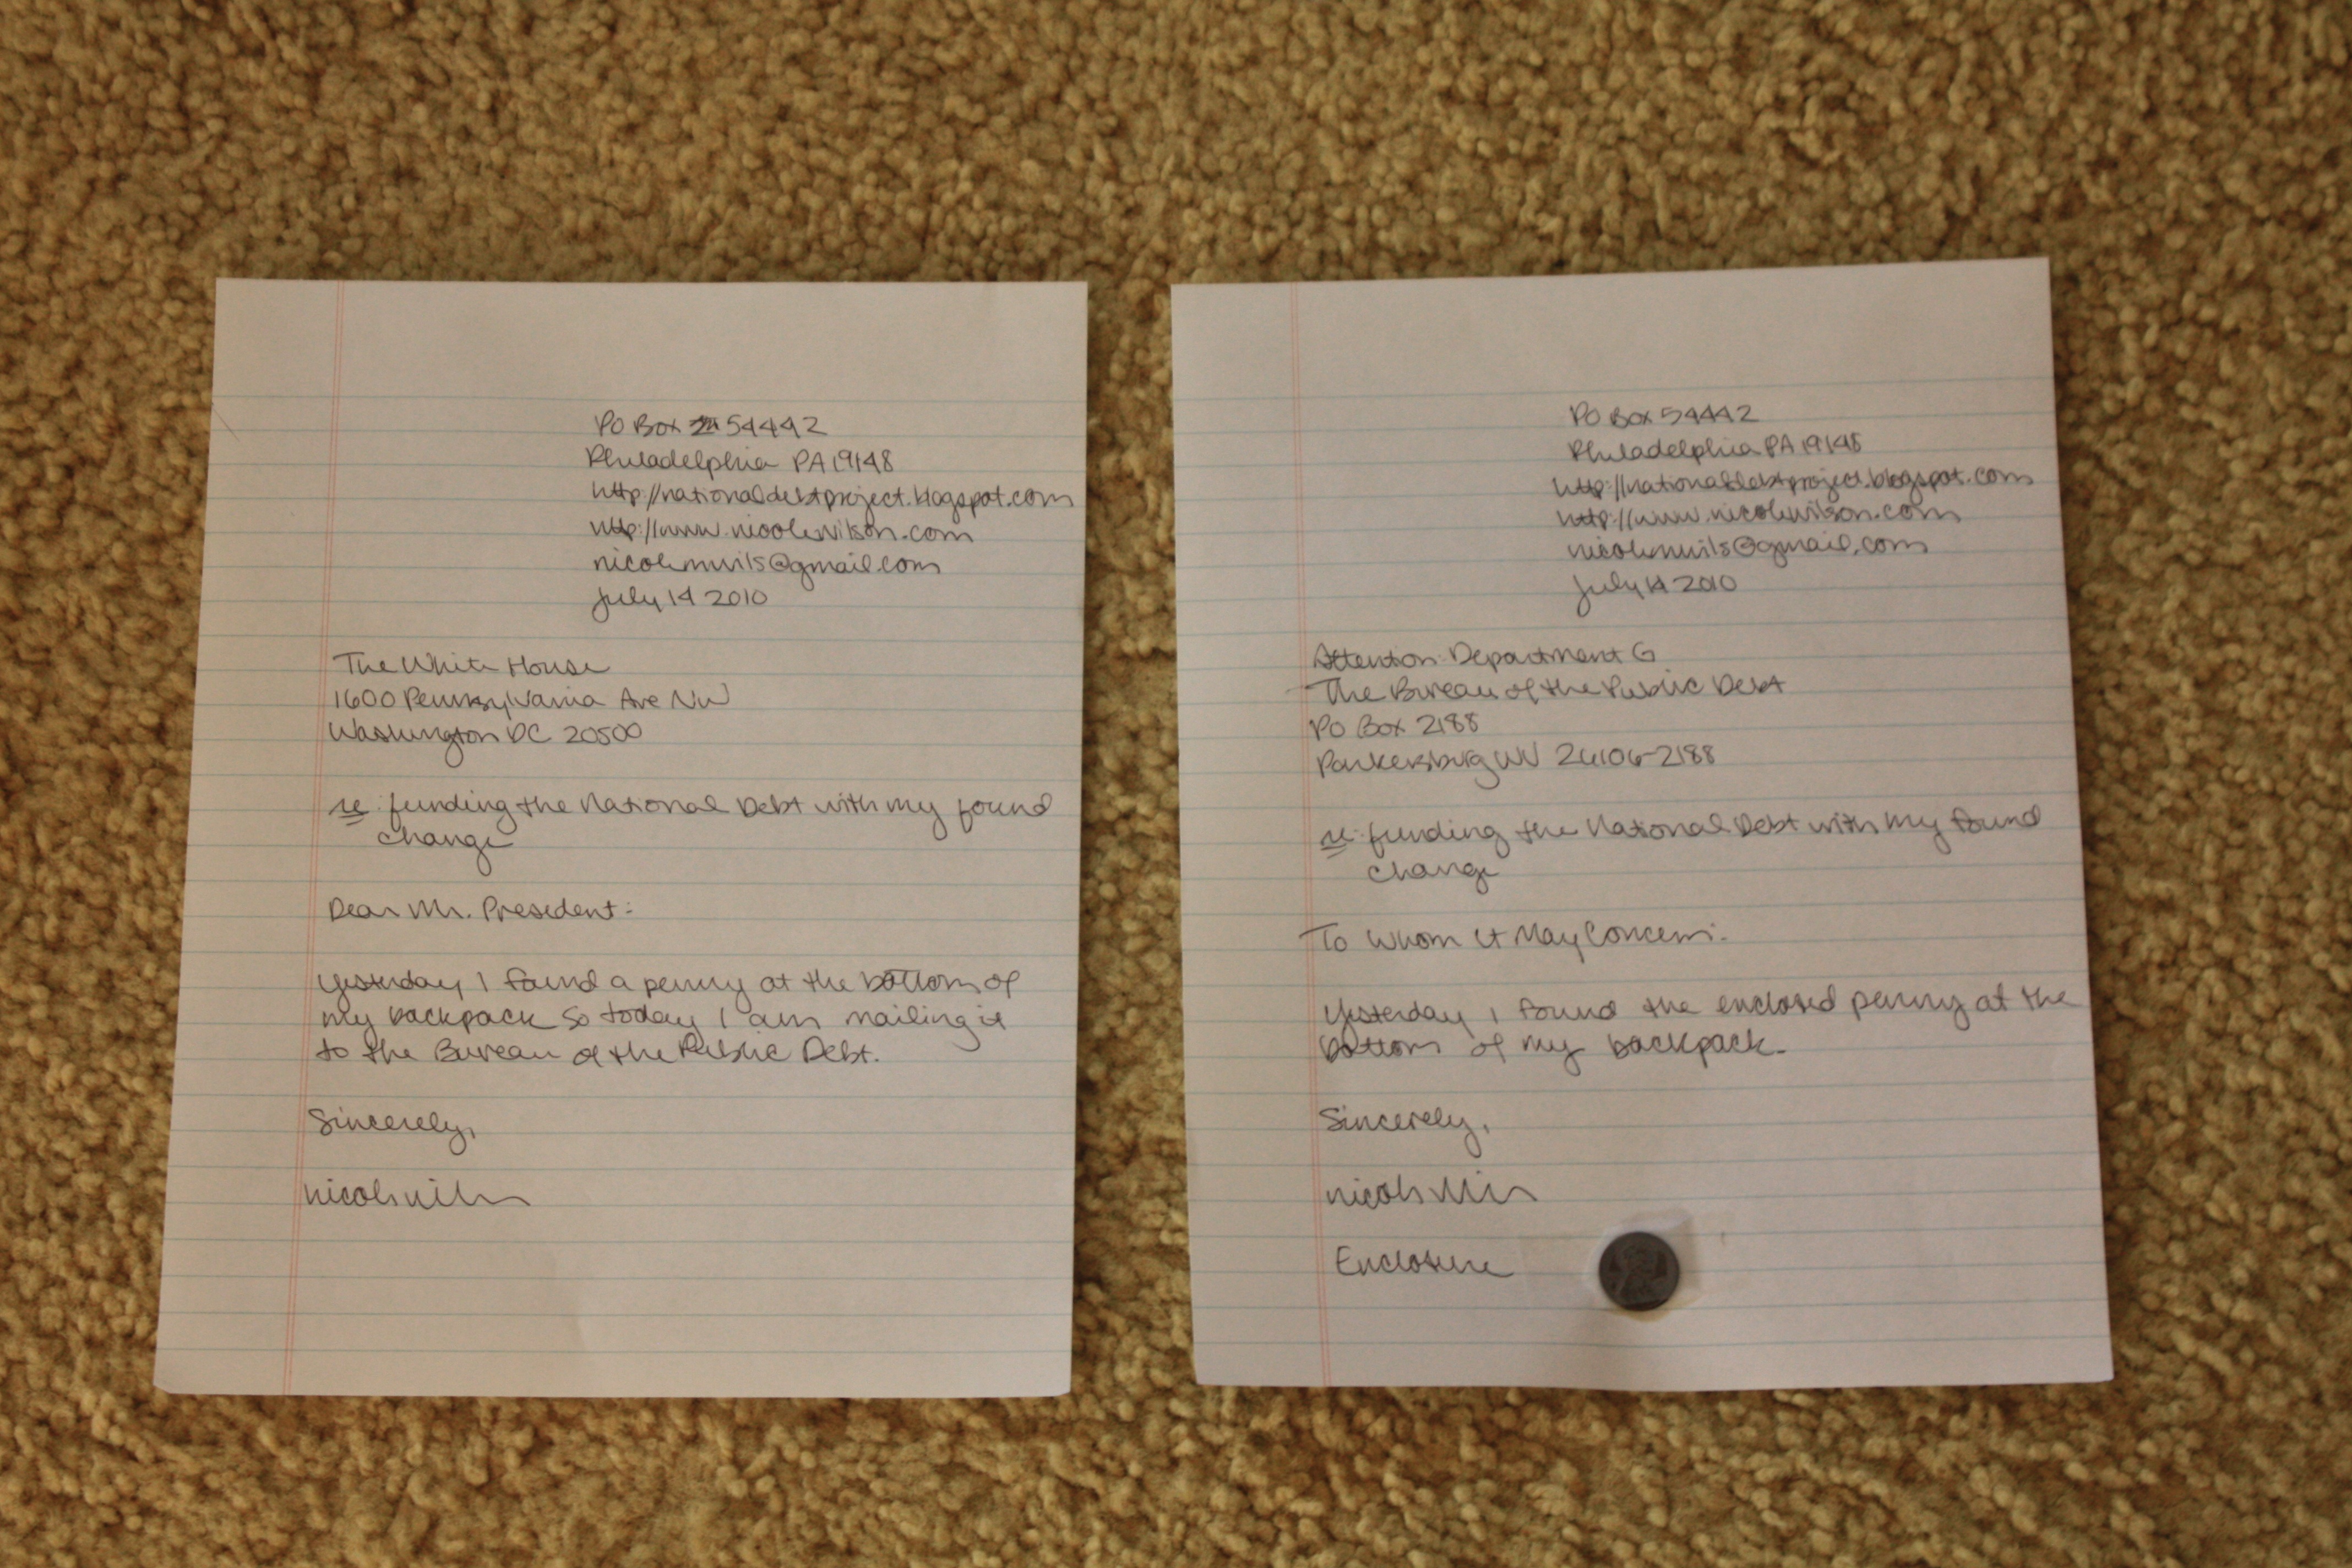 PO Box 54442
Philadelphia PA 19148
http://nationaldebtproject.blogspot.com
http://www.nicolewilson.com
nicolemwils@gmail.com
July 14 2010
The White House
1600 Pennsylvania Ave NW
Washington DC 20500
re: funding the National Debt with my found
change
Dear Mr. President:
Yesterday I found a penny at the bottom of
my backpack so today I am mailing it
to the Bureau of the Public Debt.
Sincerely,
PO Box 54442
Philadelphia PA 19148
http://nationaldebtproject.blogspot.com
http://www.nicolewilson.com
nicolemwils@gmail.com
July 14 2010
Attention Department G
The Bureau of the Public Debt
PO Box 2188
Parkersburg WV 26106-2188
re: funding the National Debt with my found
change
To Whom It May Concern:
Yesterday I found the enclosed penny at the
bottom of my backpack.
Sincerely,
Enclosure